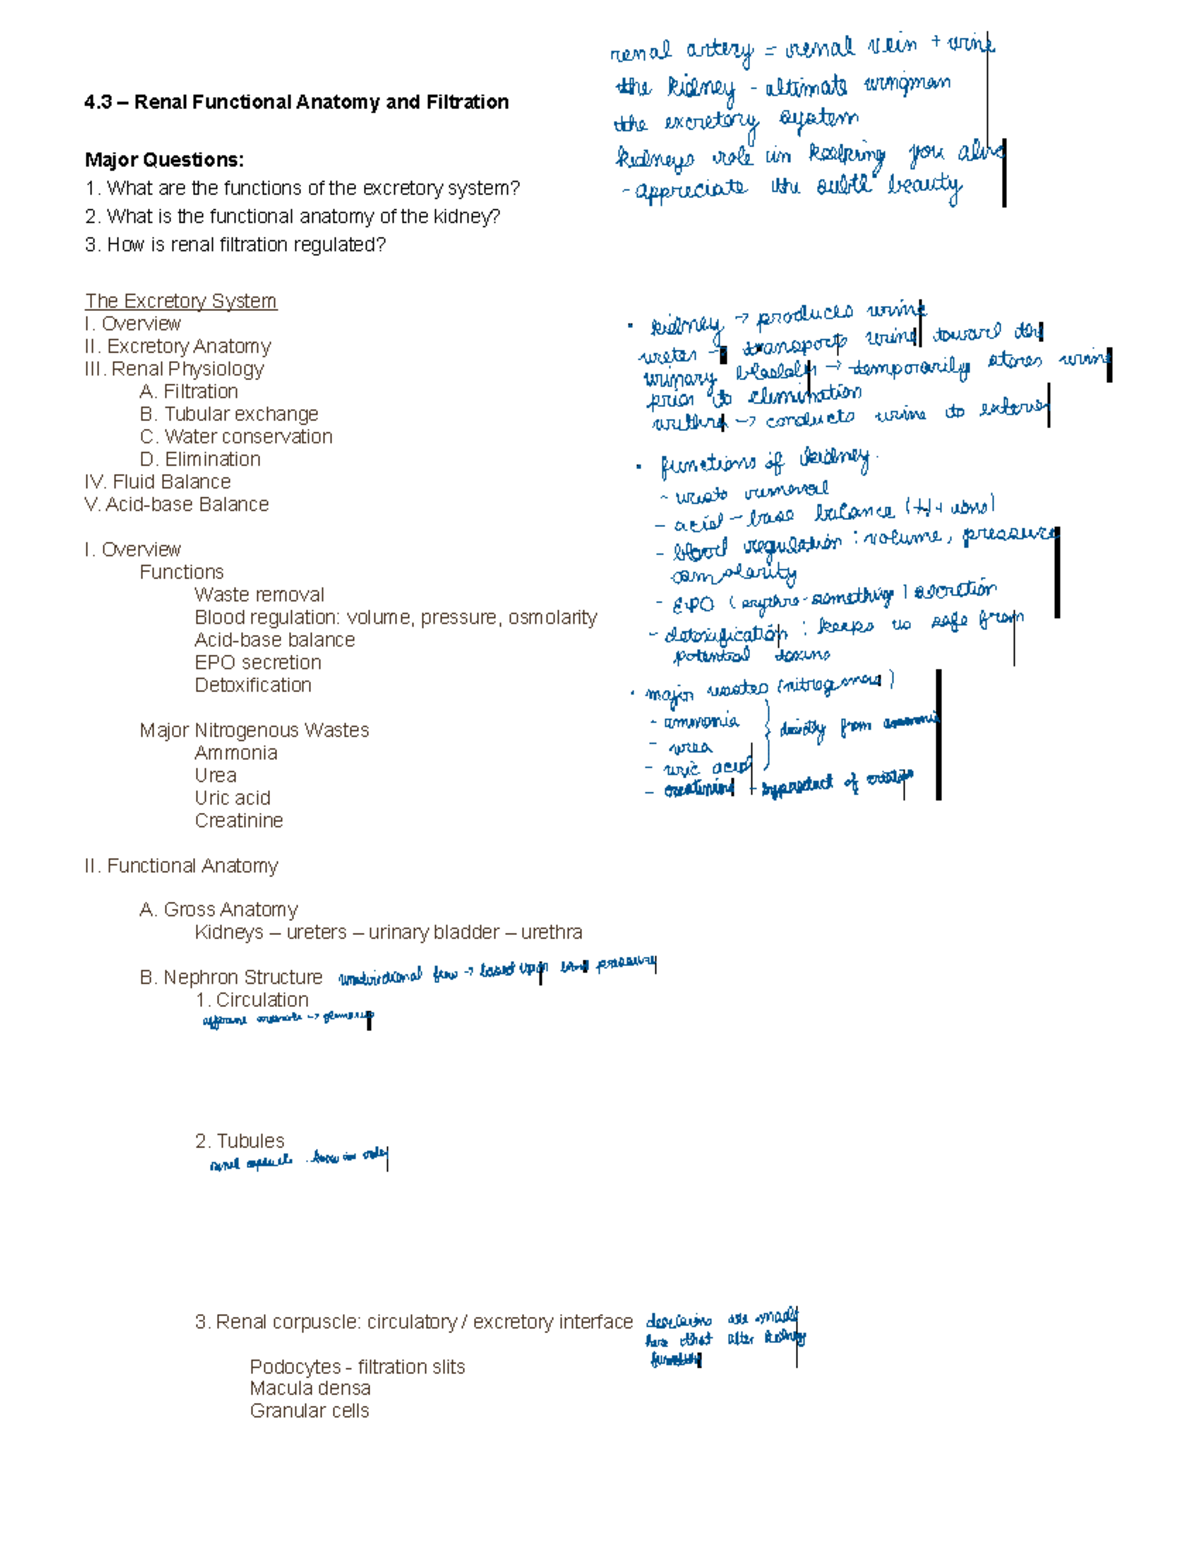 renal artery = renal vein + urine
the kidney - altimate wingman
the excretory system
kidneys role in keeping you alive
- appreciate the subtle beauty
4.3 – Renal Functional Anatomy and Filtration
Major Questions:
1. What are the functions of the excretory system?
2. What is the functional anatomy of the kidney?
3. How is renal filtration regulated?
The Excretory System
I. Overview
II. Excretory Anatomy
III. Renal Physiology
A. Filtration
B. Tubular exchange
C. Water conservation
D. Elimination
IV. Fluid Balance
V. Acid-base Balance
• kidney → produces urine
ureter → transports urine toward the
urinary bladder → temporarily stores urine
prior to elimination
urethra → conducts urine to exterior
• functions of kidney.
- waste removal
- acid-base balance (H+ ions)
- blood regulation: volume, pressure
osmolarity
- EPO (erythro-something) secretion
- detoxification: keeps us safe from
potential toxins
• major wastes (nitrogenous)
- ammonia
- urea
- uric acid
} directly from ammonia
- creatinine - byproduct of
I. Overview
Functions
Waste removal
Blood regulation: volume, pressure, osmolarity
Acid-base balance
EPO secretion
Detoxification
Major Nitrogenous Wastes
Ammonia
Urea
Uric acid
Creatinine
II. Functional Anatomy
A. Gross Anatomy
Kidneys – ureters – urinary bladder – urethra
B. Nephron Structure unidirectional flow → based upon blood pressure
1. Circulation
afferent arteriole → glomerulus
2. Tubules
renal capsule
3. Renal corpuscle: circulatory / excretory interface decisions are made
here that alter kidney
function
Podocytes - filtration slits
Macula densa
Granular cells